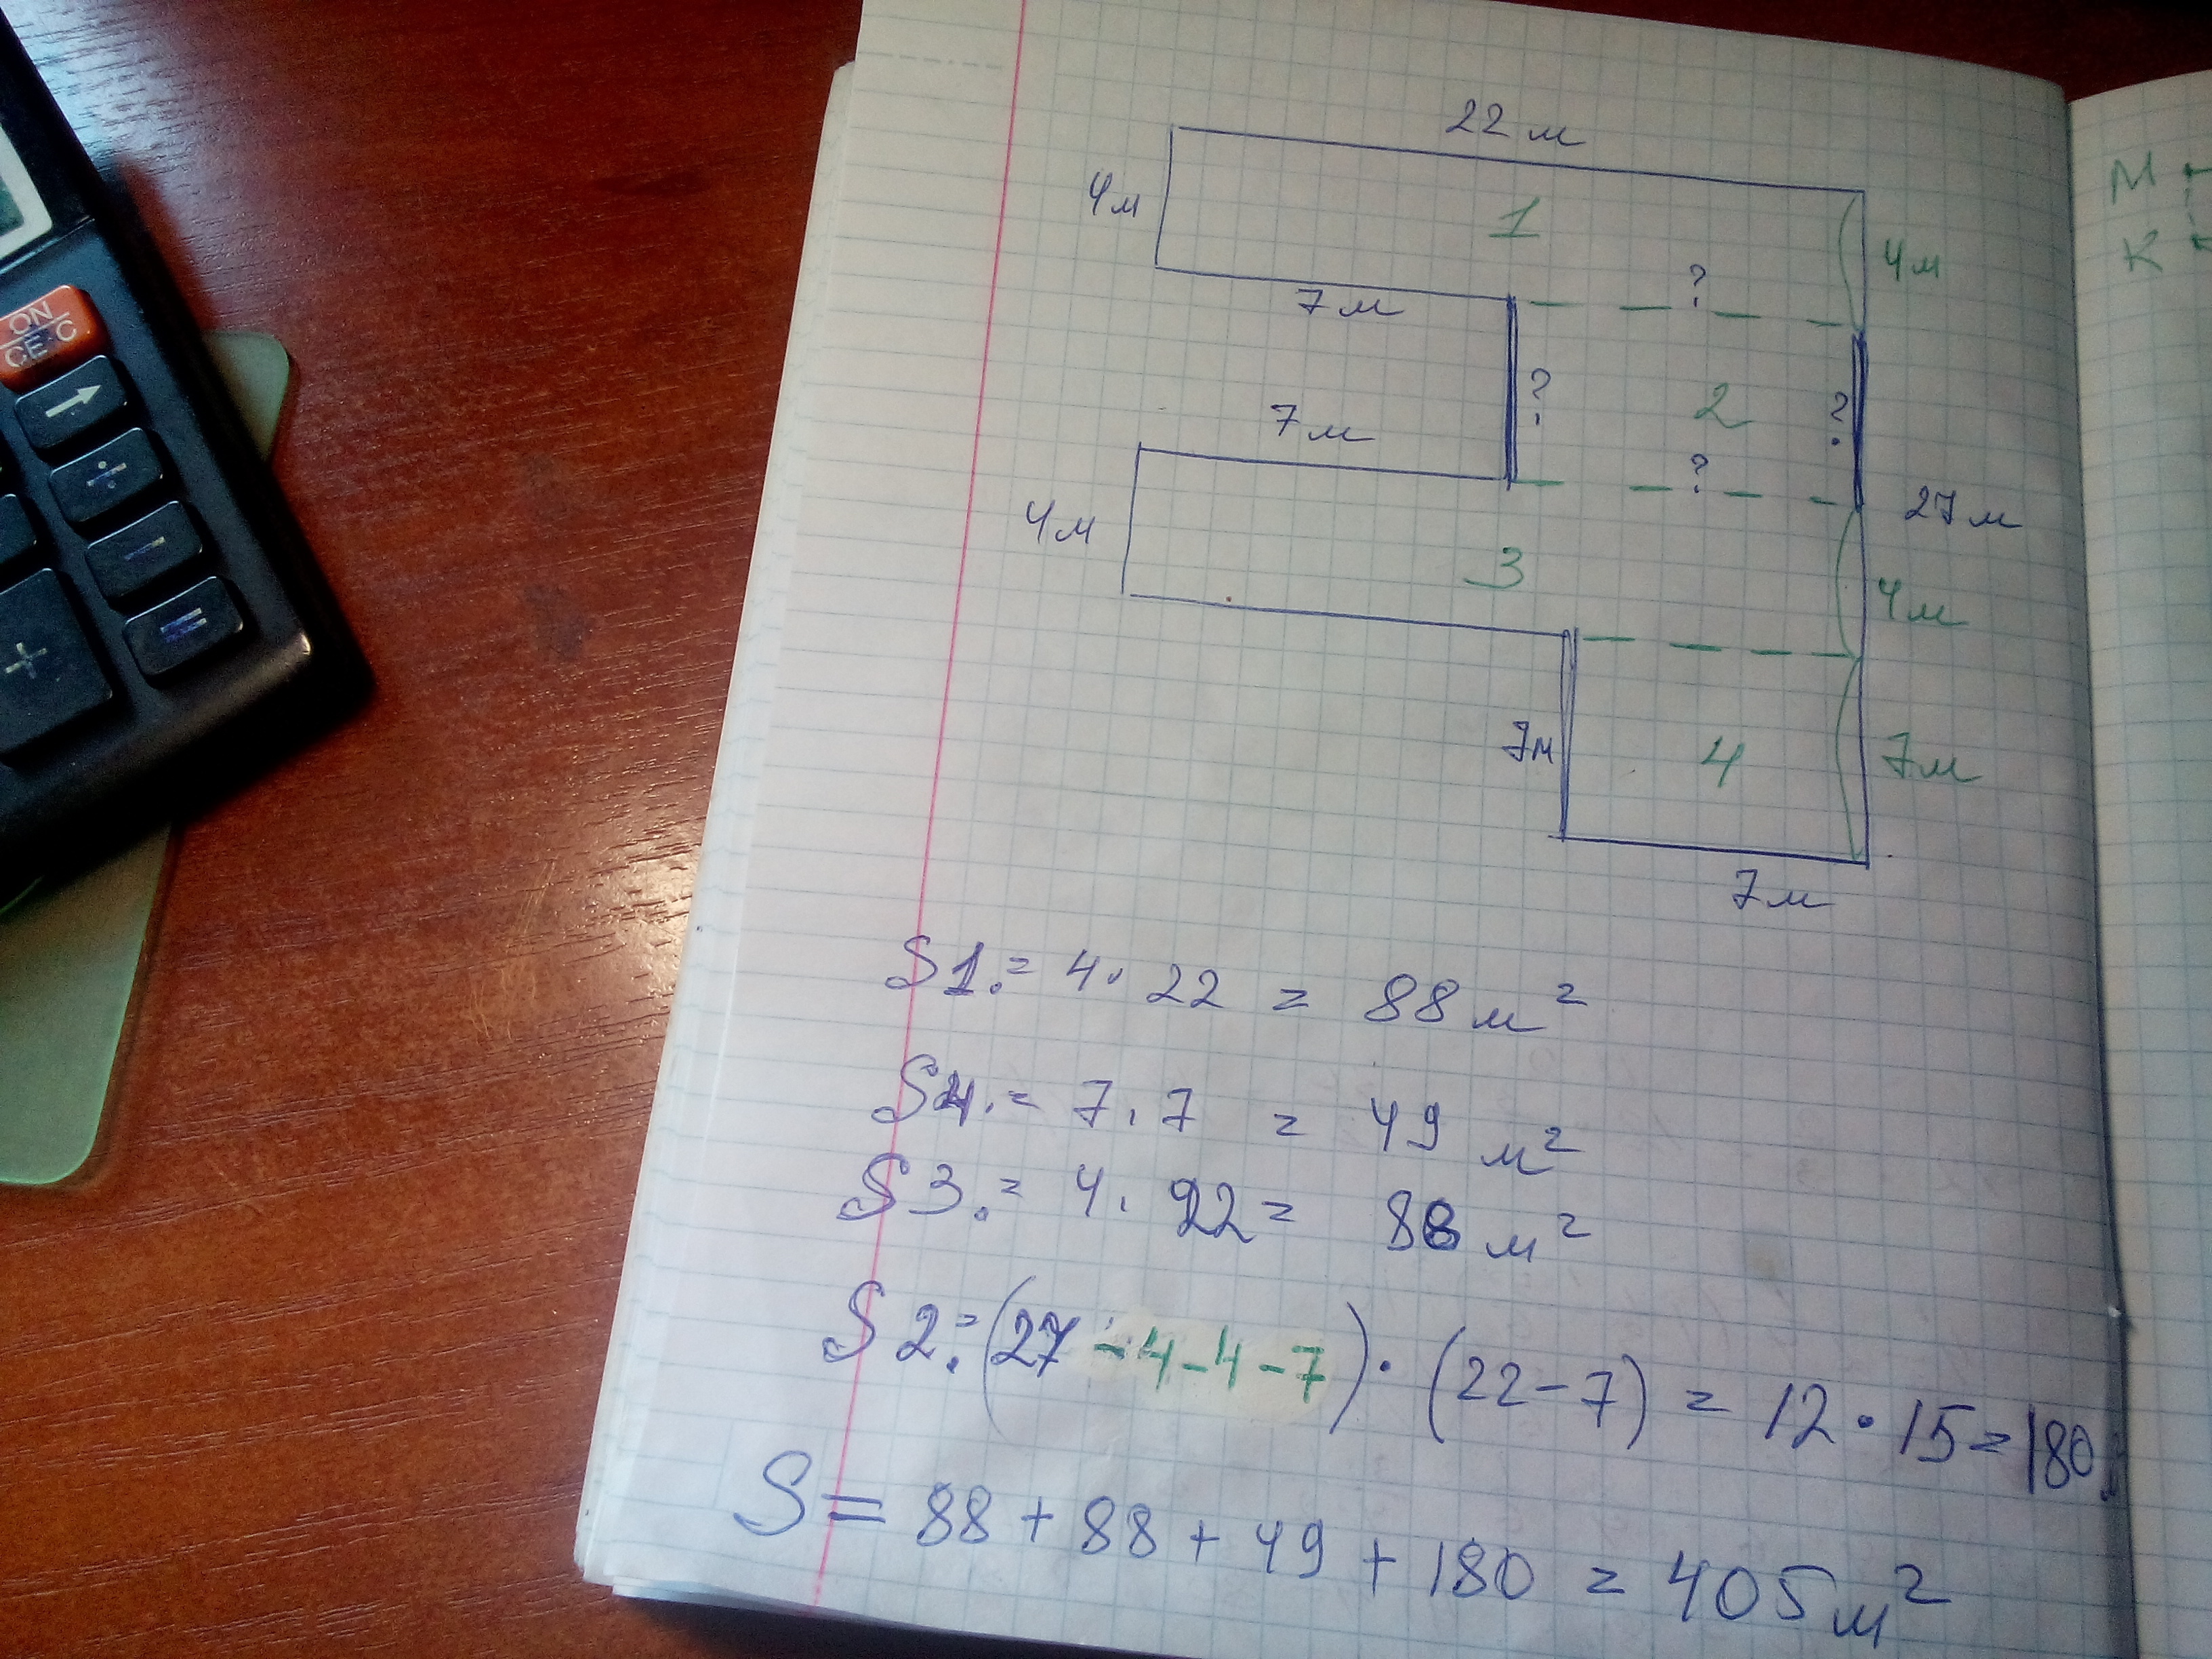 22 м
4м
1
4м
7м
?
?
2
?
7м
?
27м
4м
3
4м
7м
4
7м
7м
S1.= 4 · 22 = 88 м²
S4.= 7 · 7 = 49 м²
S3.= 4 · 22 = 88 м²
S2.=(27 - 4 - 4 - 7) · (22 - 7) = 12 · 15 = 180
S = 88 + 88 + 49 + 180 = 405 м²
ON
CE·C
→
÷
−
+
=
М
К